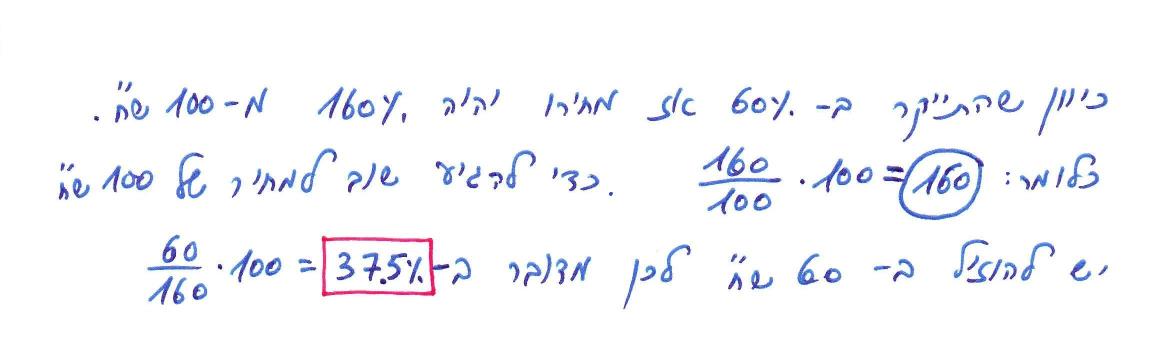 כיוון שהתייקר ב- 60% אז מחירו יהיה 160% מ-100 ש"ח.
כלומר: 160/100 · 100 = 160. כדי להגיע שוב למחיר של 100 ש"ח
יש להוזיל ב- 60 ש"ח לכן מדובר ב- 60/160 · 100 = 37.5%